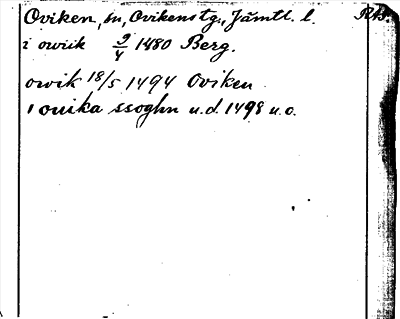 Oviken, sn, Ovikens tg., Jämtl. l. RAS.
i owiik 2/4 1480 Berg.
owik 18/5 1494 Oviken
i ouika ssoghn u.d. 1498 u.o.